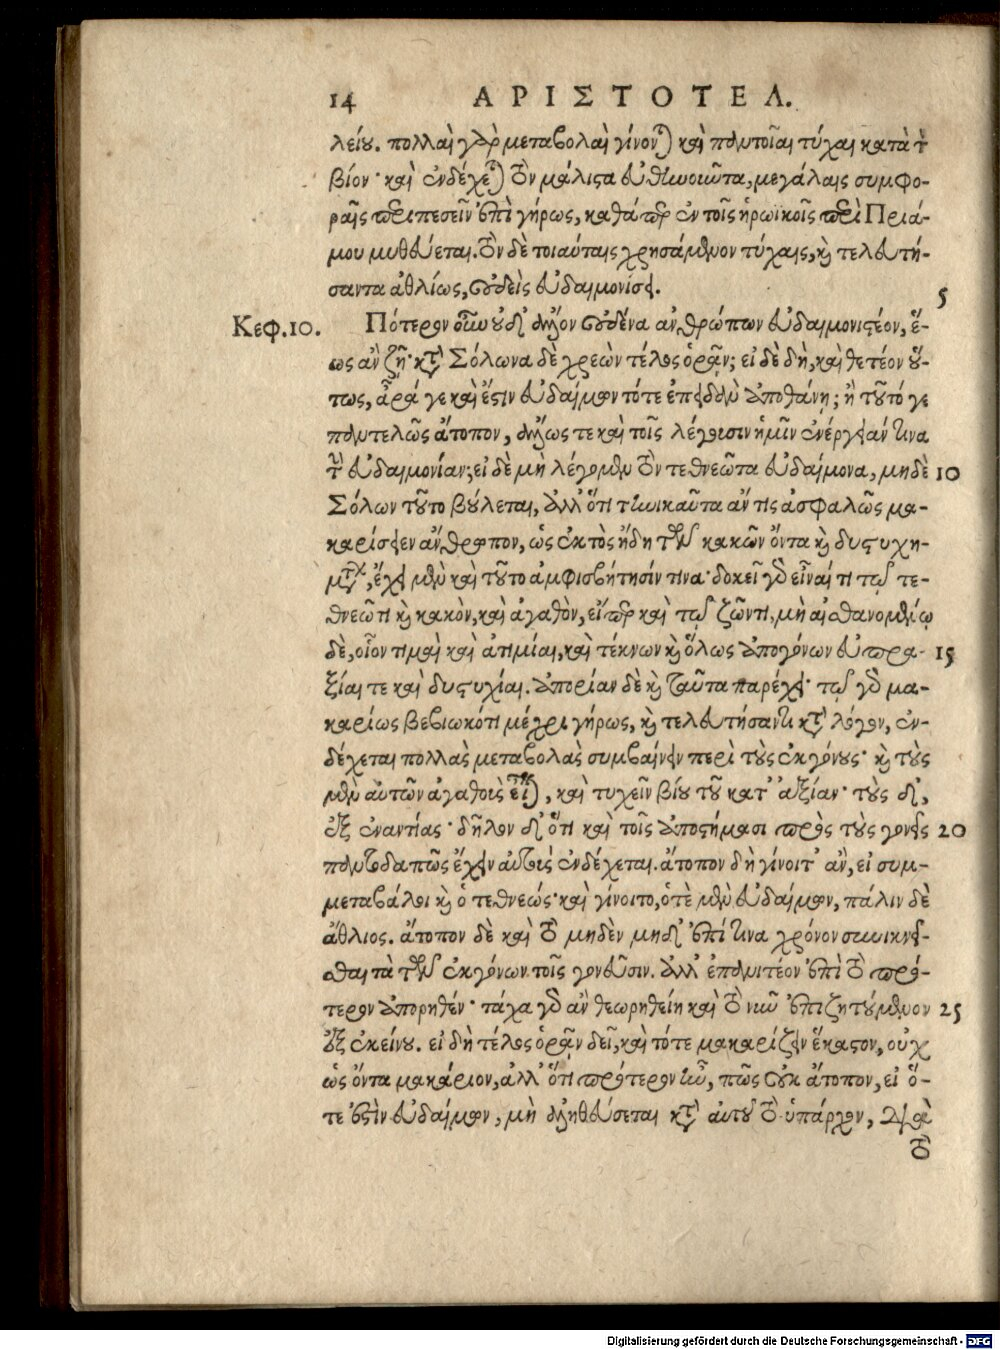 14 ΑΡΙΣΤΟΤΕΛ.
λείου. πολλαὶ γὰρ μεταβολαὶ γίνονται καὶ παντοῖαι τύχαι κατὰ τὸν
βίον· καὶ ἐνδέχεται τὸν μάλιστα εὐθηνοιῶτα, μεγάλαις συμφο-
ραῖς περιπεσεῖν ἐπὶ γήρως, καθάπερ ἐν τοῖς ἡρωϊκοῖς περὶ Πριά-
μου μυθεύεται. τὸν δὲ τοιαύταις χρησάμενον τύχαις, καὶ τελευτή-
σαντα ἀθλίως, οὐδεὶς εὐδαιμονίσει.
5
Κεφ. 10. Πότερον οὖν οὐδ' ἄλλον οὐδένα ἀνθρώπων εὐδαιμονιστέον, ἕ-
ως ἂν ζῇ· κατὰ Σόλωνα δὲ χρεὼν τέλος ὁρᾷν; εἰ δὲ δὴ, καὶ θετέον οὕ-
τως, ἆρά γε καὶ ἔστιν εὐδαίμων τότε ἐπειδὰν ἀποθάνῃ; ἢ τοῦτό γε
παντελῶς ἄτοπον, ἄλλως τε καὶ τοῖς λέγουσιν ἡμῖν ἐνέργειάν τινα
τὴν εὐδαιμονίαν; εἰ δὲ μὴ λέγομεν τὸν τεθνεῶτα εὐδαίμονα, μηδὲ 10
Σόλων τοῦτο βούλεται, ἀλλ' ὅτι τηνικαῦτα ἄν τις ἀσφαλῶς μα-
καρίσειεν ἄνθρωπον, ὡς ἐκτὸς ἤδη τῶν κακῶν ὄντα καὶ δυστυχη-
μάτων, ἔχει μὲν καὶ τοῦτο ἀμφισβήτησίν τινα· δοκεῖ γὰρ εἶναί τι τῷ τε-
θνεῶτι καὶ κακὸν, καὶ ἀγαθὸν, εἴπερ καὶ τῷ ζῶντι, μὴ αἰσθανομένῳ
δὲ, οἷον τιμαὶ καὶ ἀτιμίαι, καὶ τέκνων καὶ ὅλως ἀπογόνων εὐπρα- 15
ξίαι τε καὶ δυστυχίαι. ἀπορίαν δὲ καὶ ταῦτα παρέχει· τῷ γὰρ μα-
καρίως βεβιωκότι μέχρι γήρως, καὶ τελευτήσαντι κατὰ λόγον, ἐν-
δέχεται πολλὰς μεταβολὰς συμβαίνειν περὶ τοὺς ἐκγόνους· καὶ τοὺς
μὲν αὐτῶν ἀγαθοὺς εἶναι, καὶ τυχεῖν βίου τοῦ κατ' ἀξίαν· τοὺς δ',
ἐξ ἐναντίας· δῆλον δ' ὅτι καὶ τοῖς ἀποστήμασι πρὸς τοὺς γονεῖς 20
παντοδαπῶς ἔχειν αὐτοὺς ἐνδέχεται. ἄτοπον δὴ γίνοιτ' ἂν, εἰ συμ-
μεταβάλοι καὶ ὁ τεθνεώς· καὶ γίνοιτο, ὁτὲ μὲν εὐδαίμων, πάλιν δὲ
ἄθλιος. ἄτοπον δὲ καὶ τὸ μηδὲν μηδ' ἐπί τινα χρόνον συνικνεῖ-
σθαι τὰ τῶν ἐκγόνων τοῖς γονεῦσιν. ἀλλ' ἐπανιτέον ἐπὶ τὸ πρό-
τερον ἀπορηθέν· τάχα γὰρ ἂν θεωρηθείη καὶ τὸ νῦν ἐπιζητούμενον 25
ἐξ ἐκείνου. εἰ δὴ τέλος ὁρᾷν δεῖ, καὶ τότε μακαρίζειν ἕκαστον, οὐχ
ὡς ὄντα μακάριον, ἀλλ' ὅτι πρότερον ἦν, πῶς οὐκ ἄτοπον, εἰ ὅ-
τε ἐστὶν εὐδαίμων, μὴ ἀληθεύσεται κατ' αὐτοῦ τὸ ὑπάρχον, διὰ
τὸ